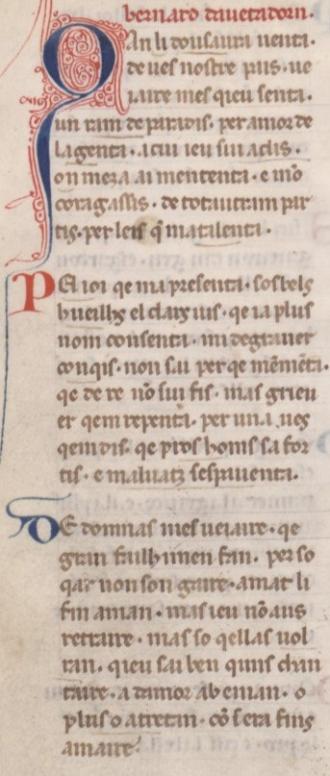 bernard dauetadorn.
Qan li dousaura uenta.
deues nostre pais. ue
iaire mes qieu senta.
un ram de paradis. per amor de
lagenta. acui ieu sui aclis.
on meza ai mententa. e mō
coragassis. de totautram par
tis. per leis q̄ matalenta.
PEl ioi qe ma presenta. sosbels
hueilhs el clars uis. qe ia plus
nom consenta. mi degrauer
conqis. non sai per qe mēmēta.
qe de re nō sui fis. mas grieu
er qem repenta. per una ues
qem dis. qe pros homs safor
tis. e maluatz sespauenta.
DE domnas mes ueiaire. qe
gran failhimen fan. per so
qar non son gaire. amat li
fin aman. mas ieu nō aus
retraire. mas so qellas uol
ran. qieu sai ben quns chan
taire. a damor ab enian. o
plus o atretan. cō sera fins
amaire.